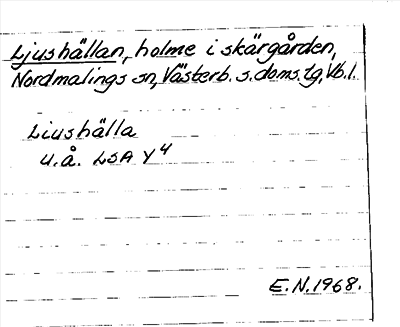 Ljushällan, holme i skärgården,
Nordmalings sn, Västerb. s. doms. tg, Vb. l.
Liushälla
u.å. LSA Y4
E.N. 1968.